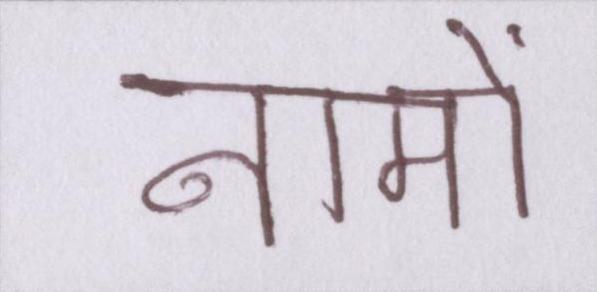 नामों